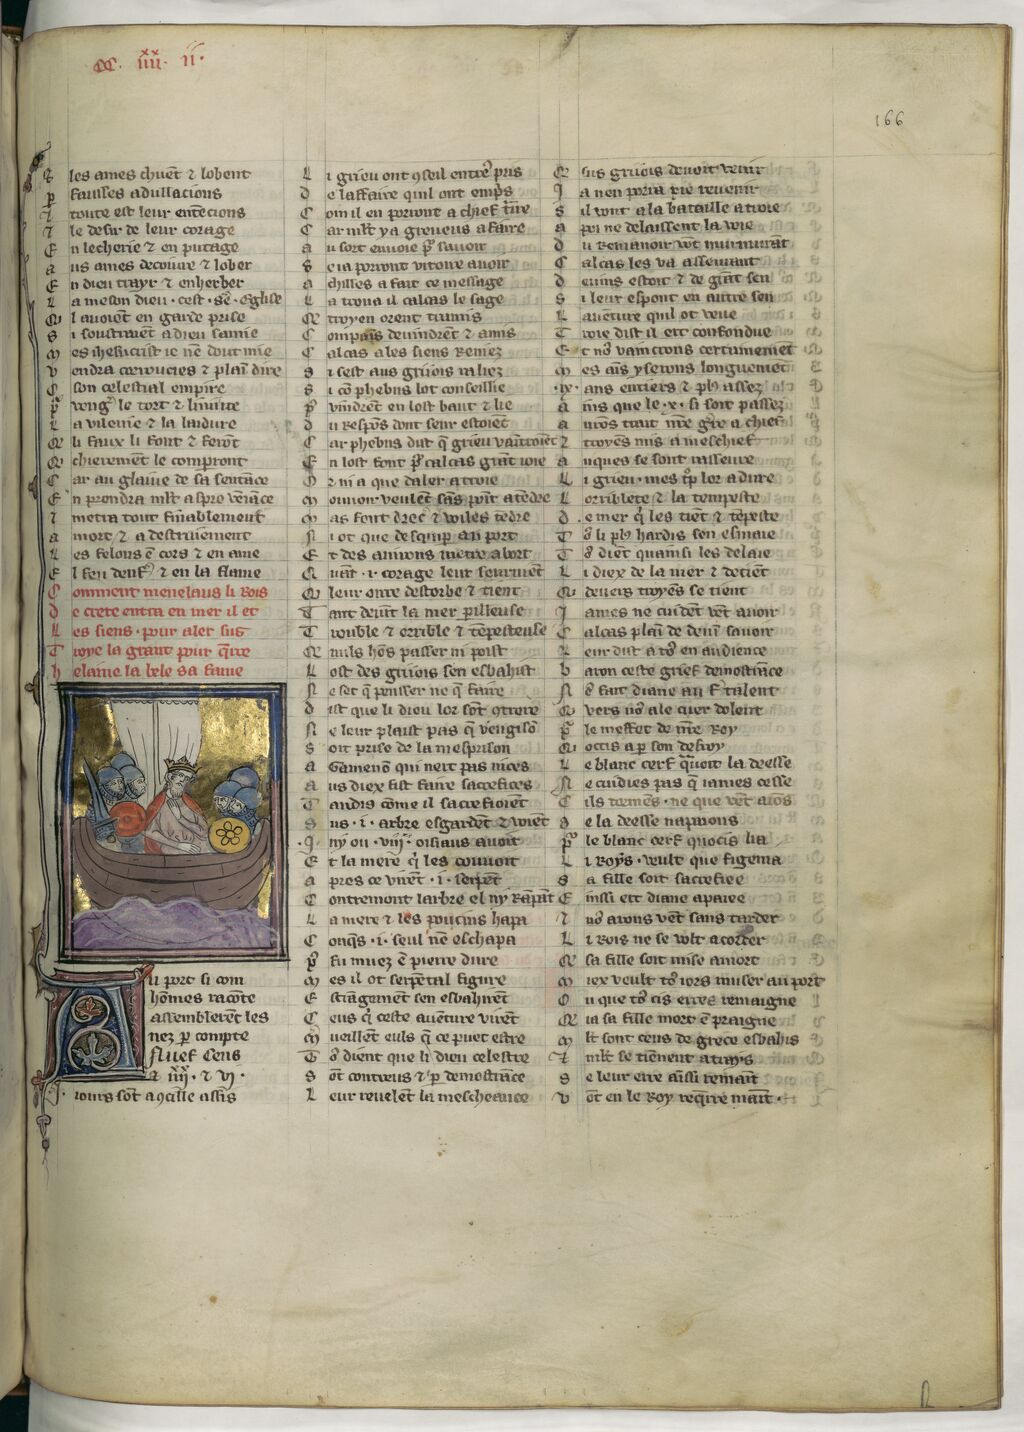 CC. iiii. ii.
166
les ames chuent ⁊ lobent
Fausses adullacions
toute est leur entecions
le desir de leur corage
En lecherie ⁊ en putage
aus ames decoiure ⁊ lober
En dieu trayr ⁊ enherber
La meson dieu · cest · se · eglise
Ql auoient en garde prise
Si soustraient a dieu samie
Mes ihesucrist ie nē dout mie
Vendra corroucies ⁊ plaī dire
Cson celestial empire
La vilenie ⁊ la laidure
Qli faux li font ⁊ feront
Qchierement le comprront
Car au glaiue de sa sentāce
En prendra mlt aspre veniāce
Imetra tout finablement
a mort ⁊ a destruiement
Les felons ē cors ⁊ en ame
El feu denfʼ ⁊ en la flame
Comment menelaus li Rois
De crete entra en mer il et
Les siens · pour aler sus
Troye la grant pour q̄rre
helaine la bele sa fame
Au port si com
hōmes racōte
assemblerēt les
nez p compte
Nuef Cens
⁊ iiii · ⁊ vi ·
iours sōt a 9cille assis
Li grieu ont 9seil entreʼ pris
De laffaire quil ont empʼs
Com il en porront a chief t̄ire
Car mlt y a greueus afaire
Au sort enuoie pʼ sauoir
Se ia porront vitoire auoir
Achilles a fait ce message
La troua il calcas le sage
Qe troyen orent tramis
Compains deuindrēt ⁊ amis
Calcas a les siens Remez
Si sest aus griiois raliez
Si cō phebus lot conseillie
Pʼ vindrēt en lost baut ⁊ lie
Du Respōs dont seur estoiēt
Car phebus dist q̄ grieu vaītroiēt
En lost font pʼ calcas grāt ioie
Or ni a que daler a troie
Mouuoir veulēt sās poīt atēdre
Mas font drecʼ ⁊ voiles tēdre
Ni ot que desquip au port
Et des auirons metre a bort
Quāt · i · corage leur seuruiēt
Qleur oirre destorbe ⁊ tient
Tant deuīt la mer perilleuse
Trouble ⁊ orrible ⁊ tēpesteuse
Qe nuls hōs passer ni poist
Lost des griiois sen esbahist
Ne set q̄ pensser ne q̄ faire
Dist que li dieu lor sōt 9trere
Ne leur plaist pas q̄ vēgisō
Soit prise de la mesprison
Agamenō qui nert pas nices
Aus diex fist faire sacrefices
Tandis cōme il sacrefioiēt
Sus · i · arbre esgardēt ⁊ voiēt
· I · ny ou · viii · oisiaus auoit
Et la mere q̄ les couuoit
Apres ce virēt · i · serpēt
Contremont larbre el ny Rāpāt
La mere ⁊ les poucins hapa
Conq̄s · i · seul nē eschapa
Pʼ fu muez ē pierre dure
Mes il ot serpētal figure
Estrāgemēt sen esbahirēt
Ceus q̄ ceste auēture virēt
Mueillēt euls q̄ ce puet estre
Tō dient que li dieu celestre
Sōt contreus ⁊ p demostrāce
Leur reuelēt la mescheance
Qe sus griiois deuoit venir
Ia nen porra rie reuenir
Sil vont a la bataille a troie
Apoi ne delaissent la voie
Du Remanoir vōt murmurāt
Calcas les va asseurant
Deuins estoit ⁊ de grāt sen
Si leur espont en autre sen
Lauēture quil ot veue
Troie dist il ert confondue
Et noʼ vaincrons certainemēt
Mes aīs y serons longuemēt
· ix · ans entiers ⁊ plʼ assez
Ains que le · x · si soit passez
Aurōs trait nr̄e gʼre a chief
⁊ troyēs mis a meschief
Auques se sont rasseure
Li grieu · mes tʼp lor a dure
Lorriblete ⁊ la tempeste
De mer q̄ les tiēt ⁊ tēpeste
Tō li plʼ hardis sen esmaie
Tō diēt quainsi les delaie
Li diex de la mer ⁊ detiēt
Qdeuers troyēs se tient
James ne cuidēt vēt auoir
Calcas plaī de deuī sauoir
Leur dist a tōʼ en audience
Baron ceste grief demostrāce
Nō fait diane au fʼ talent
Qvers noʼ a le cuer dolent
Pʼ le meffet de nr̄e Roy
Qocist a p son desroy
Le blanc cerf quoit la deesse
Ne cuidies pas q̄ iames cesse
Cils tormēs · ne que vēt aiōs
Se la deesse napaions
Pʼ le blanc cerf quocis li a
Li Roys · veult que figenia
Sa fille soit sacrefiee
Einssi ert diane apaiee
⁊ noʼ arons vēt sans tarder
Li Rois ne se volt acorder
Qe sa fille soit mise a mort
Miex veult tōʼ iors muser au port
Ou que toʼ cis erres remaigne
Qe ia sa fille mort ē praigne
Mlt sont ceus de grece esbahis
⁊ mlt se tiēnent a trays
Se leur erre aīssi remaīt
Vōt en le Roy req̄rre maīt ·